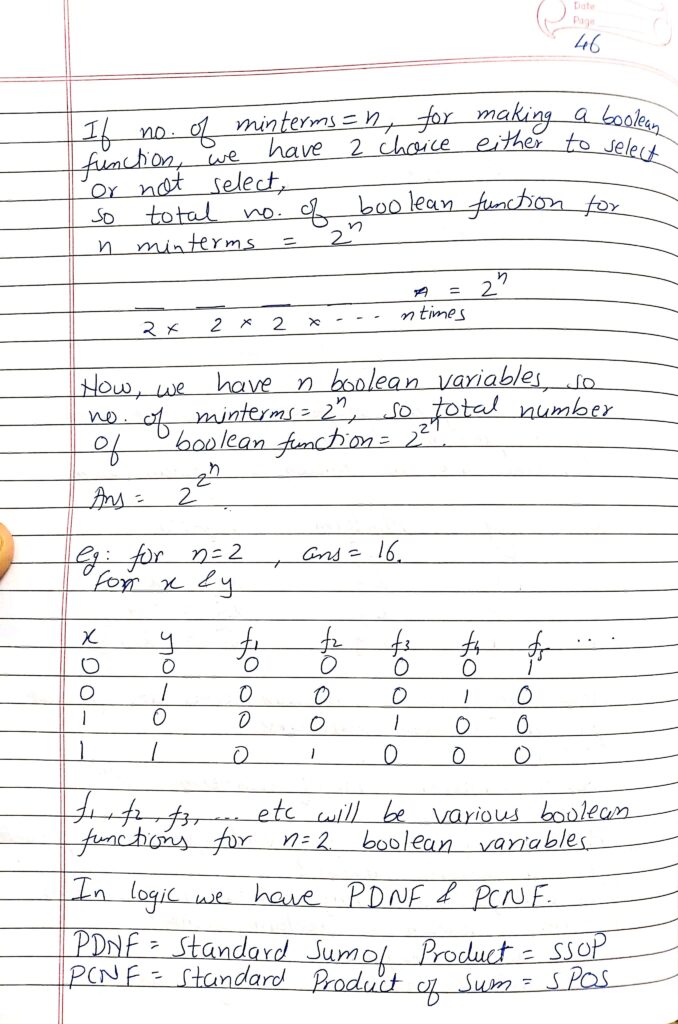 Date
Page
46
If no. of minterms = n, for making a boolean
function, we have 2 choice either to select
or not select,
so total no. of boolean function for
n minterms = 2ⁿ
= 2ⁿ
2 × 2 × 2 × - - - n times
Now, we have n boolean variables, so
no. of minterms = 2ⁿ, so total number
of boolean function = 2^2ⁿ.
Ans = 2^2ⁿ.
eg: for n=2 , ans = 16.
for x & y
x y f₁ f₂ f₃ f₄ f₅ ...
0 0 0 0 0 0 1
0 1 0 0 0 1 0
1 0 0 0 1 0 0
1 1 0 1 0 0 0
f₁, f₂, f₃, ... etc will be various boolean
functions for n=2 boolean variables.
In logic we have PDNF & PCNF.
PDNF = Standard Sum of Product = SSOP
PCNF = Standard Product of Sum = SPOS